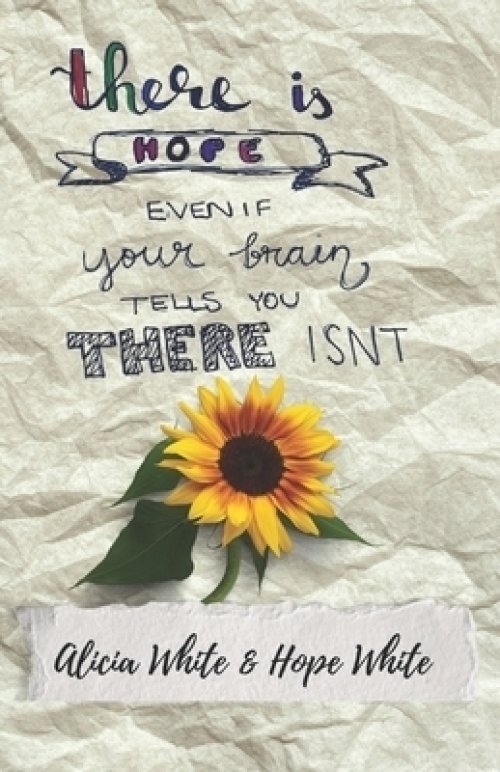 there is
HOPE
EVEN IF
your brain,
TELLS YOU
THERE ISNT
Alicia White & Hope White